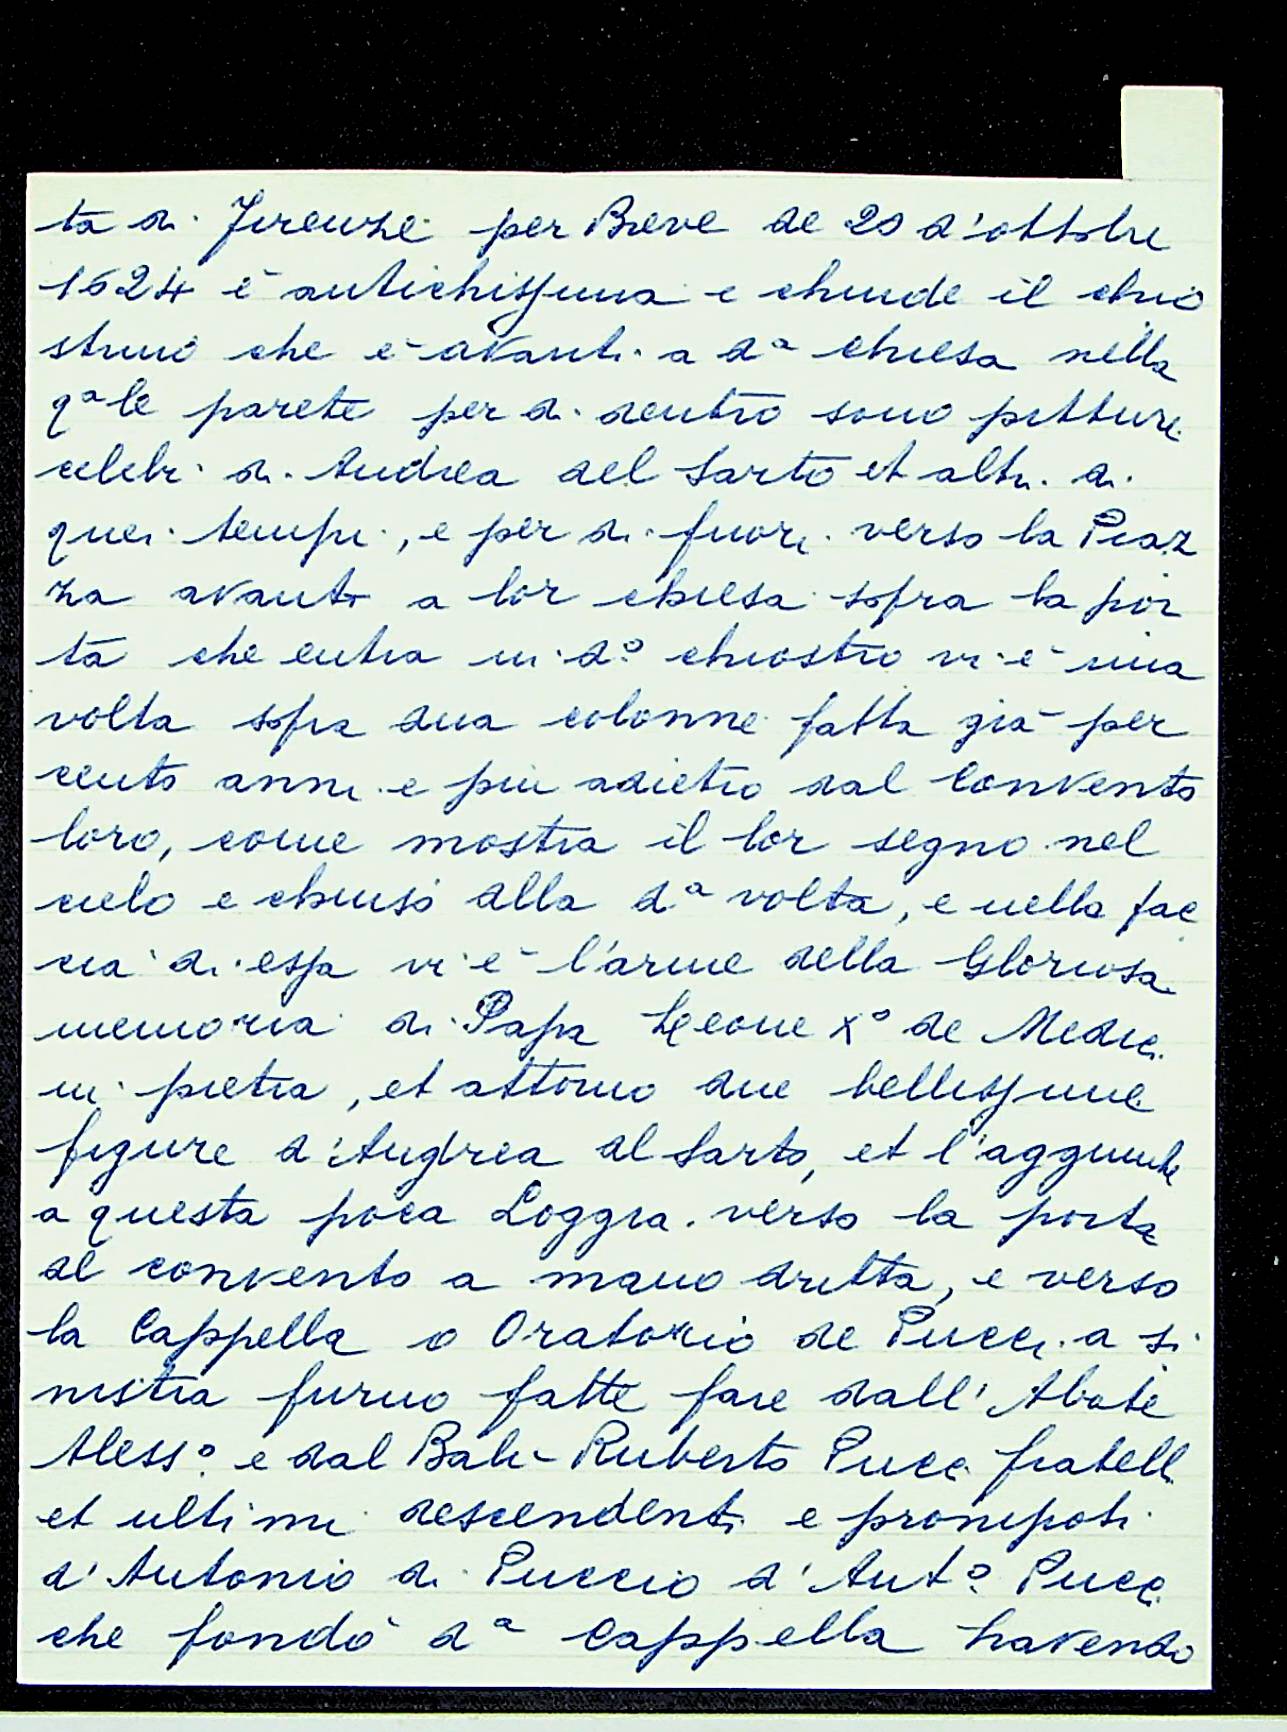 ta di Firenze per Breve de 20 d'ottobre
1624 è antichissima e chiude il chio
struio che è avanti a dª chiesa nella
qªle parete per di dentro sono pitture
celebri di Andrea del Sarto et altri di
quei tempi, e per di fuori verso la Piaz
za avanti a lor chiesa sopra la por
ta che entra in dº chiostro vi è una
volta sopra dua colonne fatta già per
cento anni e più adietro dal Convento
loro, come mostra il lor segno nel
cielo e chiuso alla dª volta, e nella fac
cia di essa vi è l'arme della Gloriosa
memoria di Papa Leone Xº de Medici
in pietra, et attorno due bellissime
figure d'Andrea al Sarto, et l'aggiunte
a questa poca Loggia verso la porta
al convento a mano dritta, e verso
la Cappella o Oratorio de Pucci a si
nistra furno fatte fare dall'Abate
Alessº e dal Balì Ruberto Pucci fratelli
et ultimi descendenti e pronipoti
d'Antonio di Puccio d'Antº Pucci
che fondò dª Cappella havendo